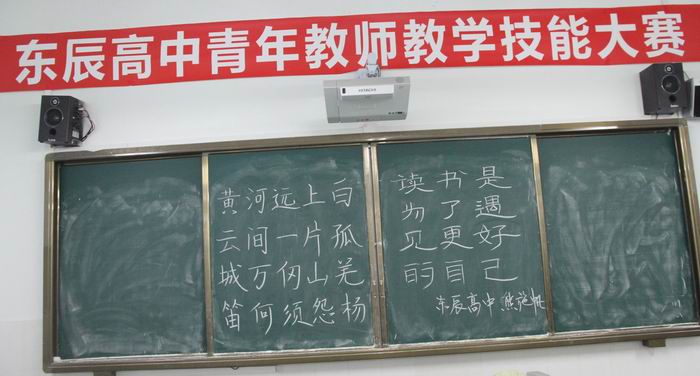 东辰高中青年教师教学技能大赛
HITACHI
黄河远上白
云间一片孤
城万仞山羌
笛何须怨杨
读书是
为了遇
见更好
的自己
东辰高中